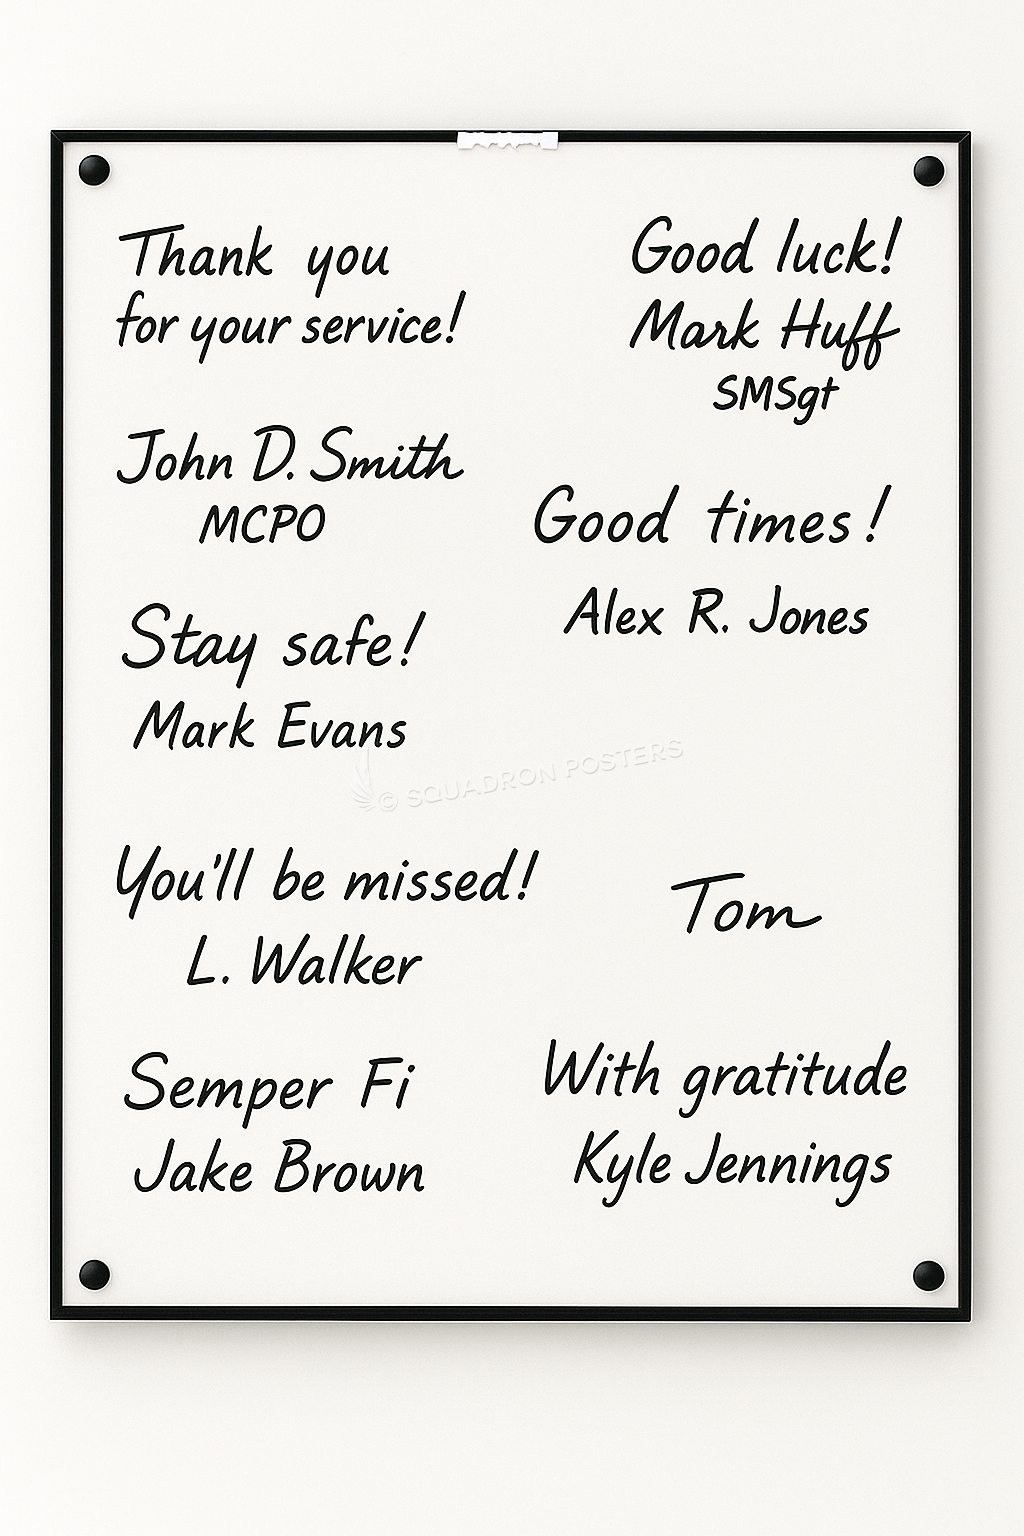 Thank you
for your service!
John D. Smith
MCPO
Stay safe!
Mark Evans
You'll be missed!
L. Walker
Semper Fi
Jake Brown
Good luck!
Mark Huff
SMSgt
Good times!
Alex R. Jones
Tom
With gratitude
Kyle Jennings
© SQUADRON POSTERS